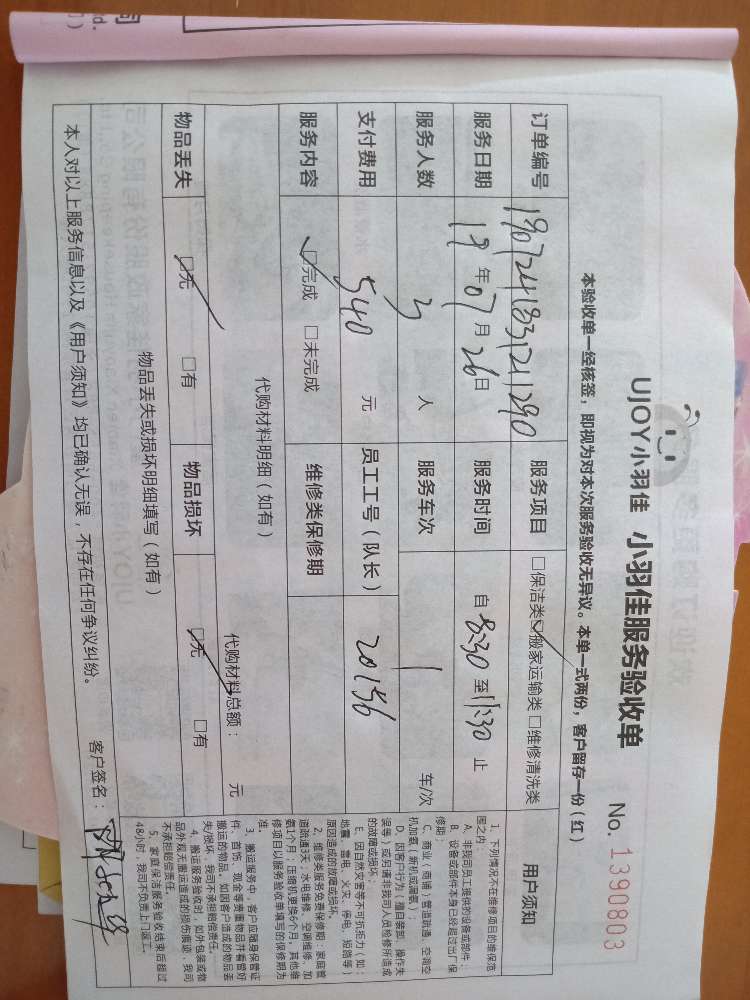 UJOY小羽佳 小羽佳服务验收单 No. 1390803
本验收单一经核签，即视为对本次服务验收无异议。本单一式两份，客户留存一份（红）
订单编号 190724183121290 服务项目 □保洁类☑搬家运输类 □维修清洗类
服务日期 19 年 07 月 26 日 服务时间 自 8:30 至 11:30 止
服务人数 3 人 服务车次 1 车/次
支付费用 540 元 员工工号（队长） 20156
服务内容 ☑完成 □未完成 维修类保修期
代购材料明细（如有） 代购材料总额： 元
物品丢失 ☑无 □有 物品损坏 ☑无 □有
物品丢失或损坏明细填写（如有）
本人对以上服务信息以及《用户须知》均已确认无误，不存在任何争议纠纷。 客户签名：
用户须知
1、下列情况不在维修项目的维保范
围之内：
A、非我司员工提供的设备或部件；
B、设备或部件本身已经超过出厂保
修期；
C、商业（商铺）管道疏通、空调空
机加氟（新机或漏氟）；
D、因客户行为（擅自装卸、操作失
误等）或另请非我司人员检修所造成
的故障或损坏；
E、因自然灾害等不可抗拒力（如：
地震、雷电、火灾、停电、短路等）
原因造成的故障或损坏。
2、维修类服务免费保修期：家庭管
道疏通7天；水电维修、空调维修、加
氨1个月；压缩机更换6个月，其他维
修项目以服务验收单填写的保修期为
准。
3、搬运服务中，客户应随身保管证
件、首饰、现金等贵重物品并看管好
搬运的物品，如因客户造成的物品丢
失/损坏，我司不承担赔偿责任。
4、搬运服务验收时，如外包装或物
品外观无搬运造成的损伤痕迹，我司
不承担赔偿责任。
5、家庭保洁服务验收结束后超过
48小时，我司不负责上门返工。